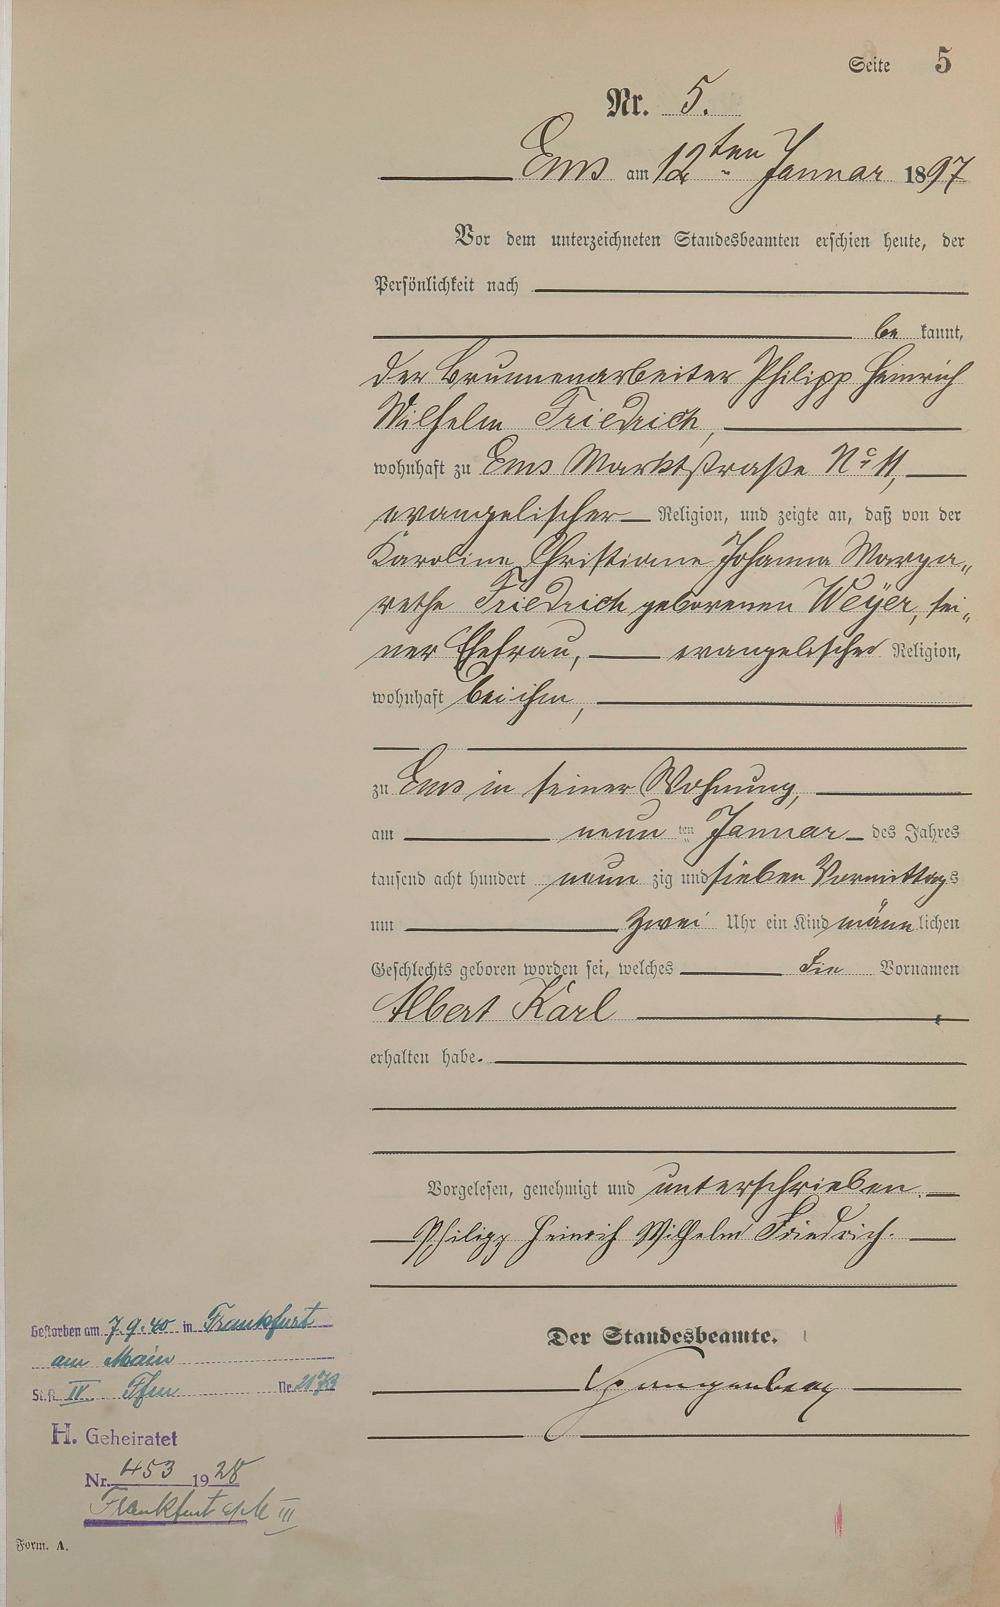 Seite 5
Nr. 5.
Ems am 12ten Januar 1897
Vor dem unterzeichneten Standesbeamten erschien heute, der
Persönlichkeit nach
be kannt,
der Brunnenarbeiter Philipp Heinrich
Wilhelm Friedrich,
wohnhaft zu Ems Marktstraße No 11,
evangelischer Religion, und zeigte an, daß von der
Karoline Christiane Johanna Marga„
rethe Friedrich geborenen Weÿer, sei„
ner Ehefrau, evangelischer Religion,
wohnhaft bei ihm,
zu Ems in seiner Wohnung,
am neun ten Januar des Jahres
tausend acht hundert neun zig und sieben Vormittags
um zwei Uhr ein Kind männlichen
Geschlechts geboren worden sei, welches die Vornamen
Albert Karl
erhalten habe.
Vorgelesen, genehmigt und unterschrieben.
Philipp Heinrich Wilhelm Friedrich.
Der Standesbeamte.
Gestorben am 7.9.40 in Frankfurt
am Main
St.A. IV Ffm Nr.
H. Geheiratet
Nr. 453 1928
Frankfurt a/M III
Form. A.